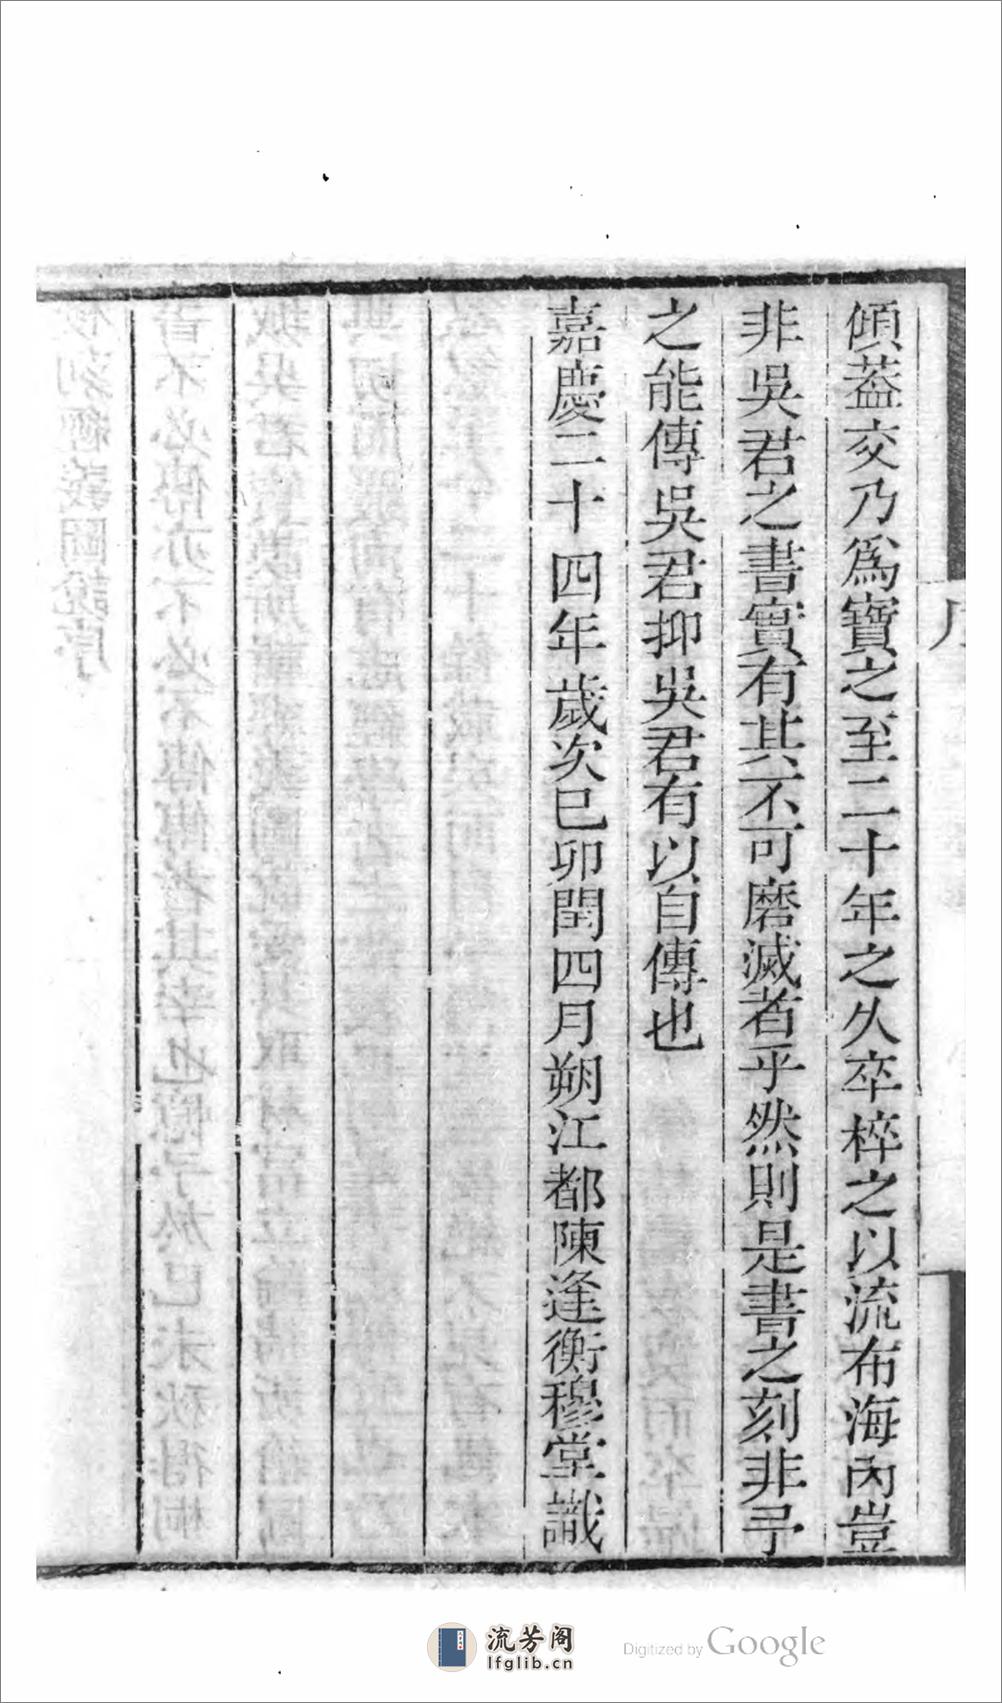 傾葢交乃爲寶之至二十年之久卒梓之以流布海內豈
非吳君之書實有其不可磨滅者乎然則是書之刻非予
之能傳吳君抑吳君有以自傳也
嘉慶二十四年歲次己卯閏四月朔江都陳逢衡穆堂識
序
流芳阁
lfglib.cn
Digitized by Google